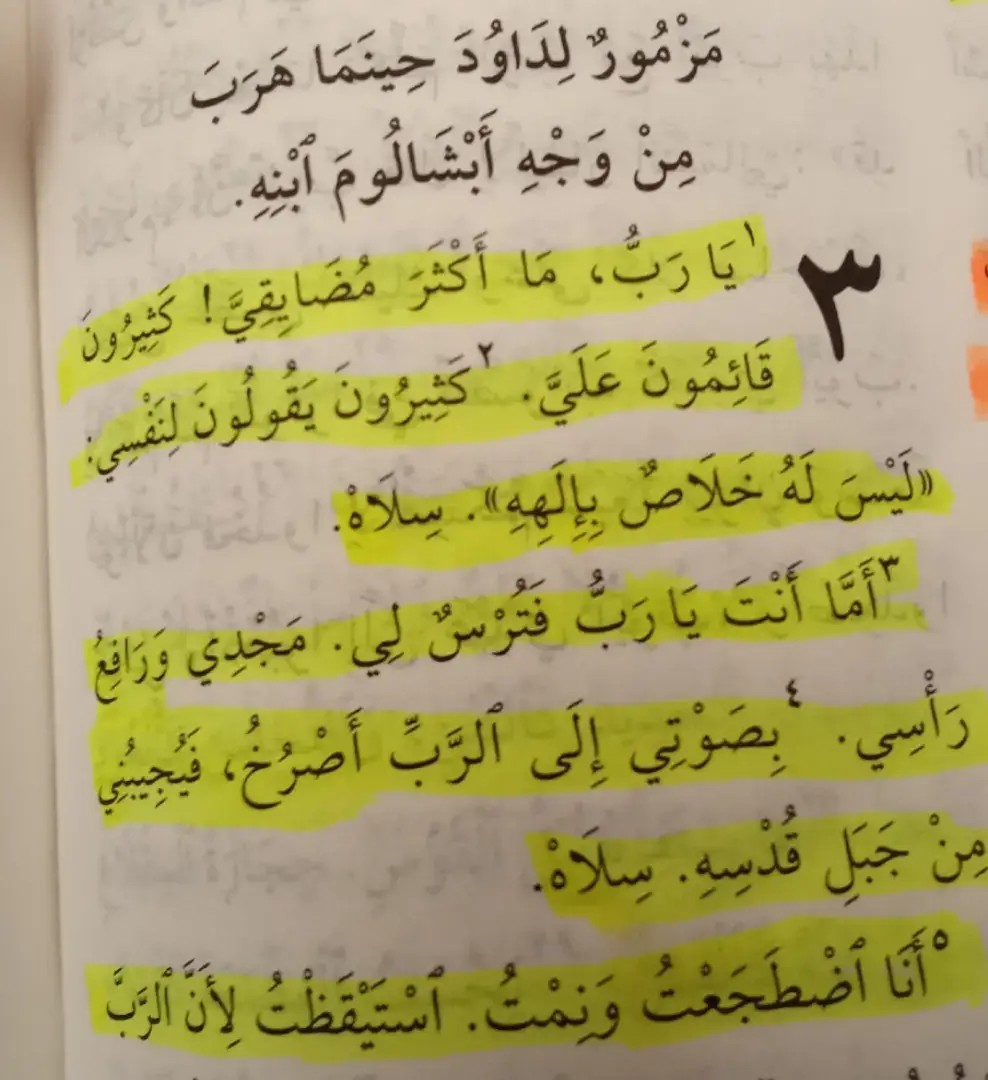 مَزْمُورٌ لِدَاوُدَ حِينَمَا هَرَبَ
مِنْ وَجْهِ أَبْشَالُومَ ٱبْنِهِ.
٣ ١ يَا رَبُّ، مَا أَكْثَرَ مُضَايِقِيَّ! كَثِيرُونَ
قَائِمُونَ عَلَيَّ. ٢ كَثِيرُونَ يَقُولُونَ لِنَفْسِي:
«لَيْسَ لَهُ خَلَاصٌ بِإِلَهِهِ». سِلَاهْ.
٣ أَمَّا أَنْتَ يَا رَبُّ فَتُرْسٌ لِي. مَجْدِي وَرَافِعُ
رَأْسِي. ٤ بِصَوْتِي إِلَى ٱلرَّبِّ أَصْرُخُ، فَيُجِيبُنِي
مِنْ جَبَلِ قُدْسِهِ. سِلَاهْ.
٥ أَنَا ٱضْطَجَعْتُ وَنِمْتُ. ٱسْتَيْقَظْتُ لِأَنَّ ٱلرَّبَّ